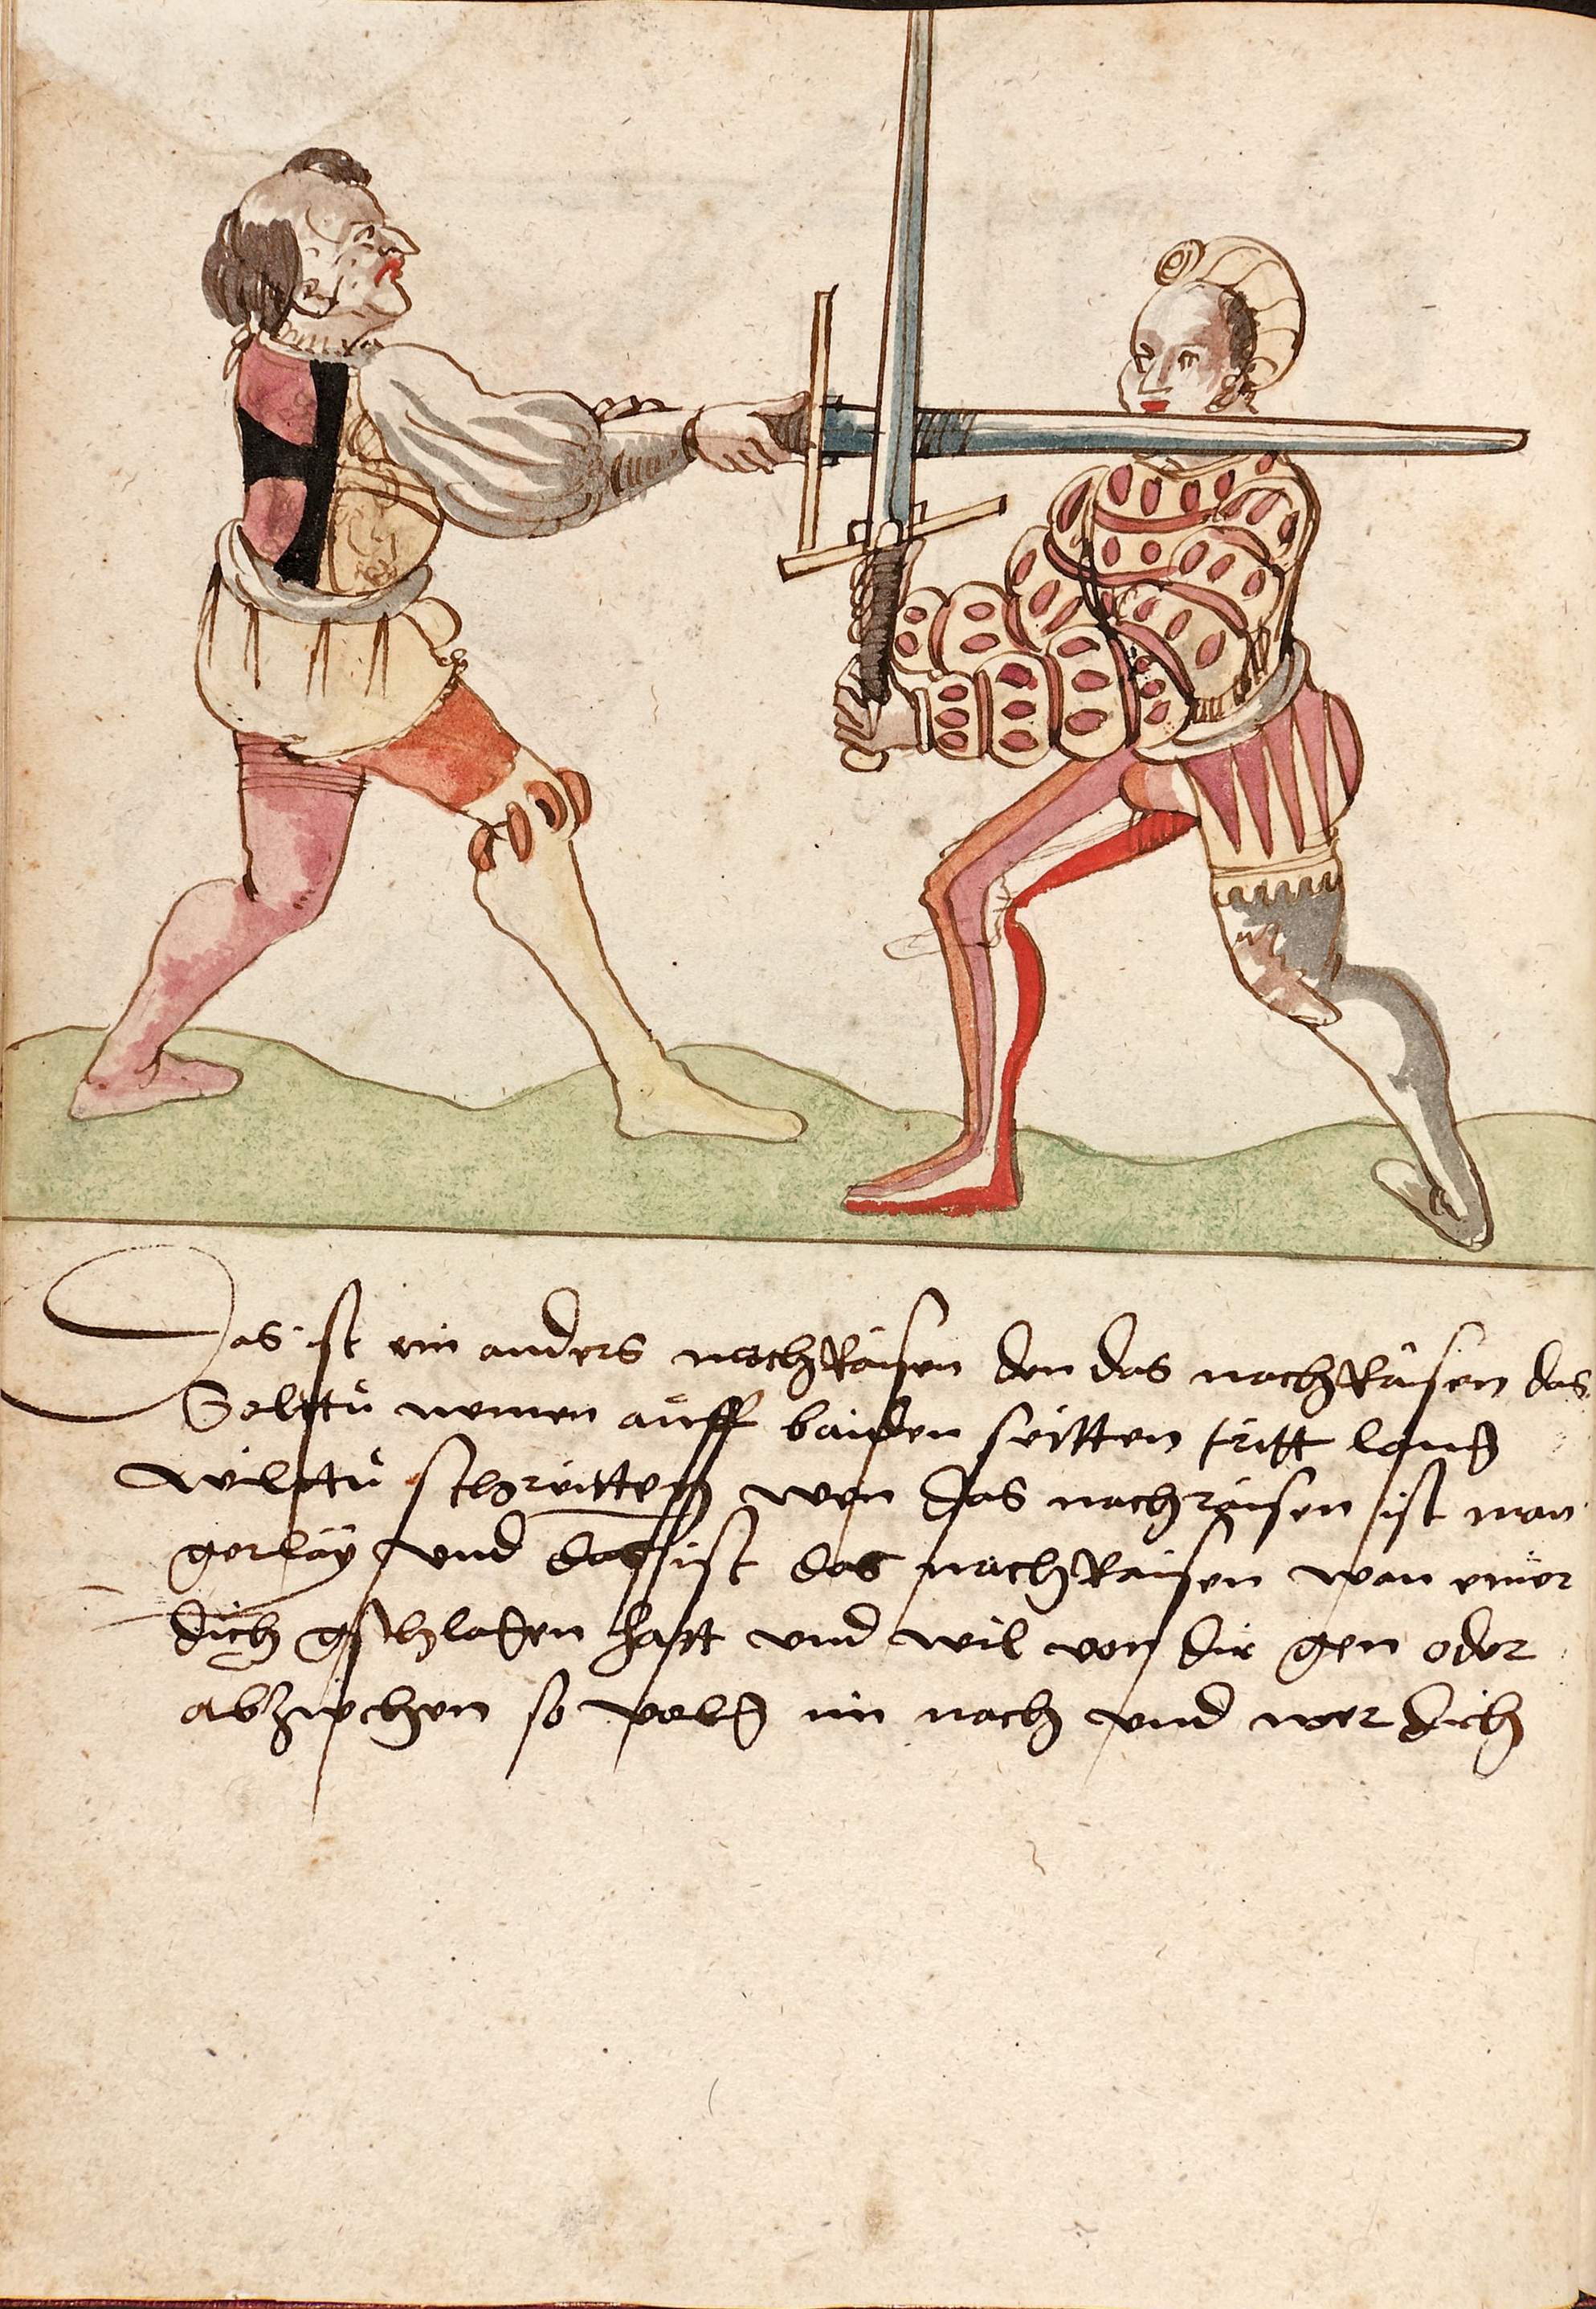 Das ist ein anders nachRaisen den das nachRaisen das
Soltu nemen auff baiden seitten tritt lanng
wiltu schreitten wen das nachraisen ist man
gerlay und das ist das nachRaisen wan einer
dich gschlagen hatt und wil von dir gen oder
abziechen so volg im nach und wer dich